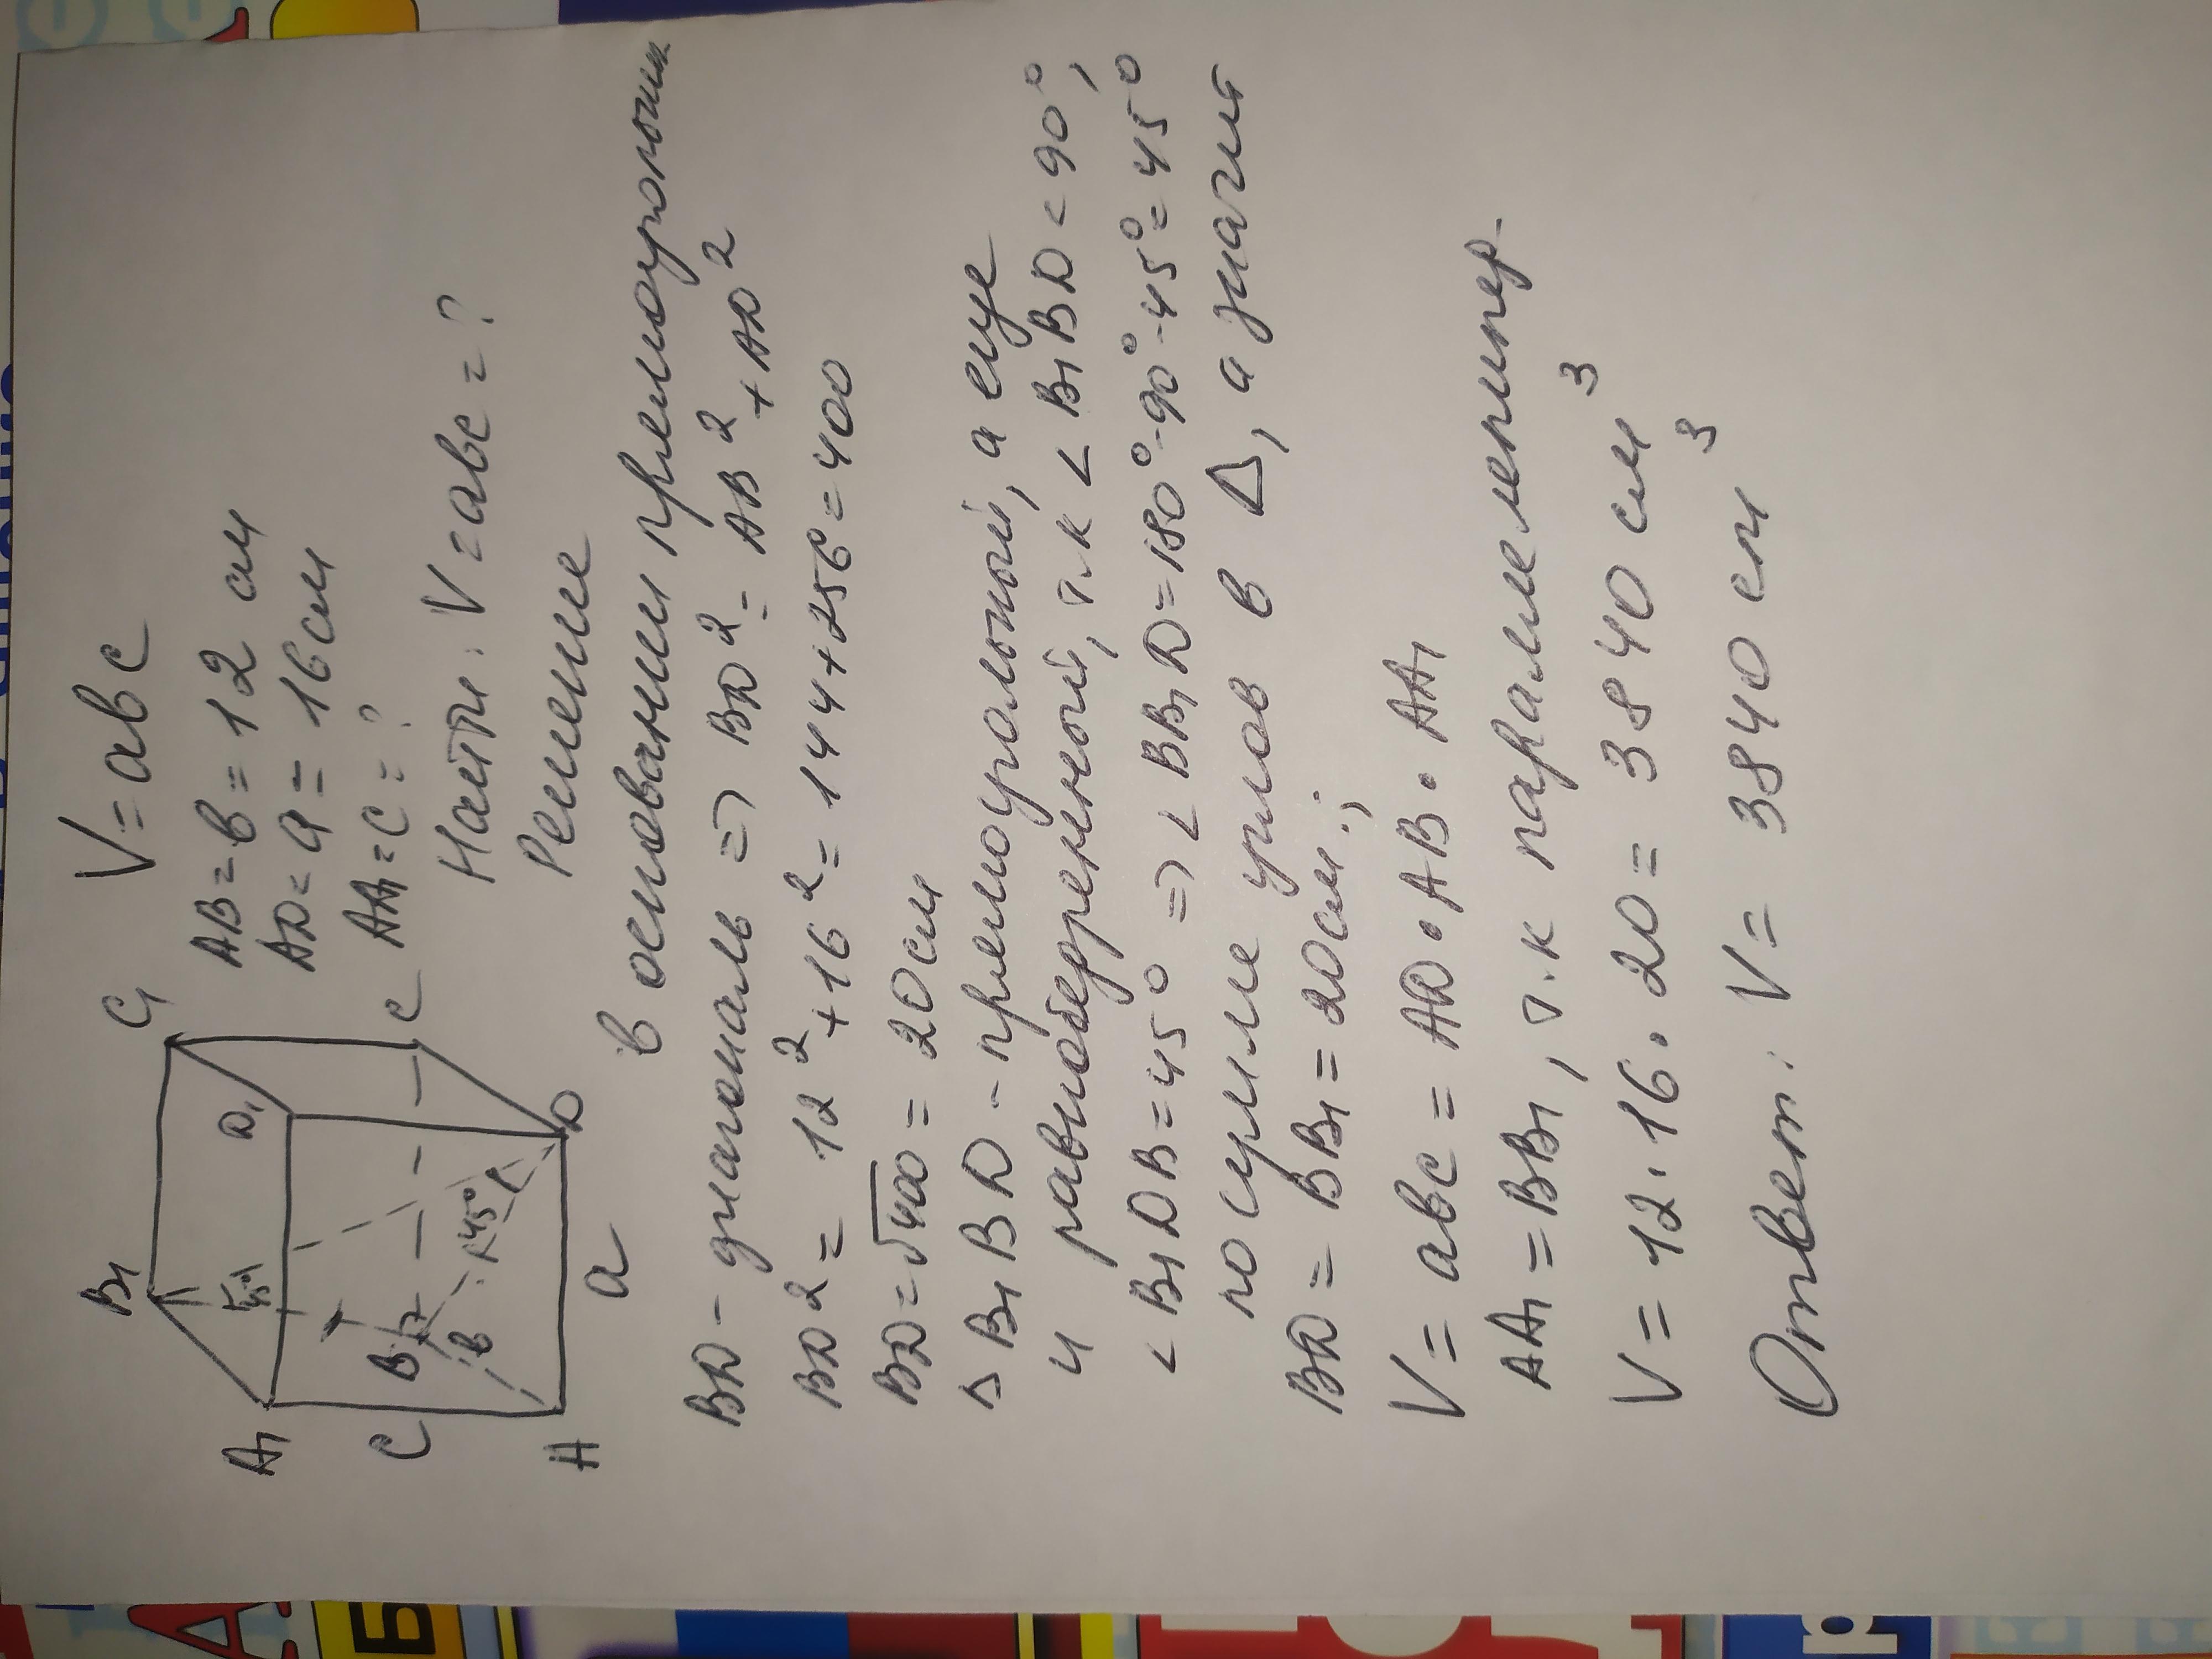 V = abc
AB = b = 12 см
AD = a = 16 см
AA₁ = c = ?
Найти: V = abc = ?
Решение
A₁
B₁
C₁
D₁
c
B
C
b
45°
A
D
a
В основании прямоугольник
BD - диагональ => BD² = AB² + AD²
BD² = 12² + 16² = 144 + 256 = 400
BD = √400 = 20 см
Δ B₁BD - прямоугольный, а еще
и равнобедренный, т.к ∠ B₁BD = 90°,
∠ B₁DB = 45° => ∠ BB₁D = 180° - 90° - 45° = 45°
по сумме углов в Δ, а значит
BD = BB₁ = 20 см.;
V = abc = AD • AB • AA₁
AA₁ = BB₁, т.к параллелепипед.
V = 12 • 16 • 20 = 3840 см³
Ответ: V = 3840 см³
Б